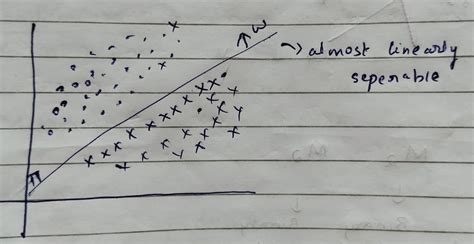 w
→ almost linearly
seperable
π